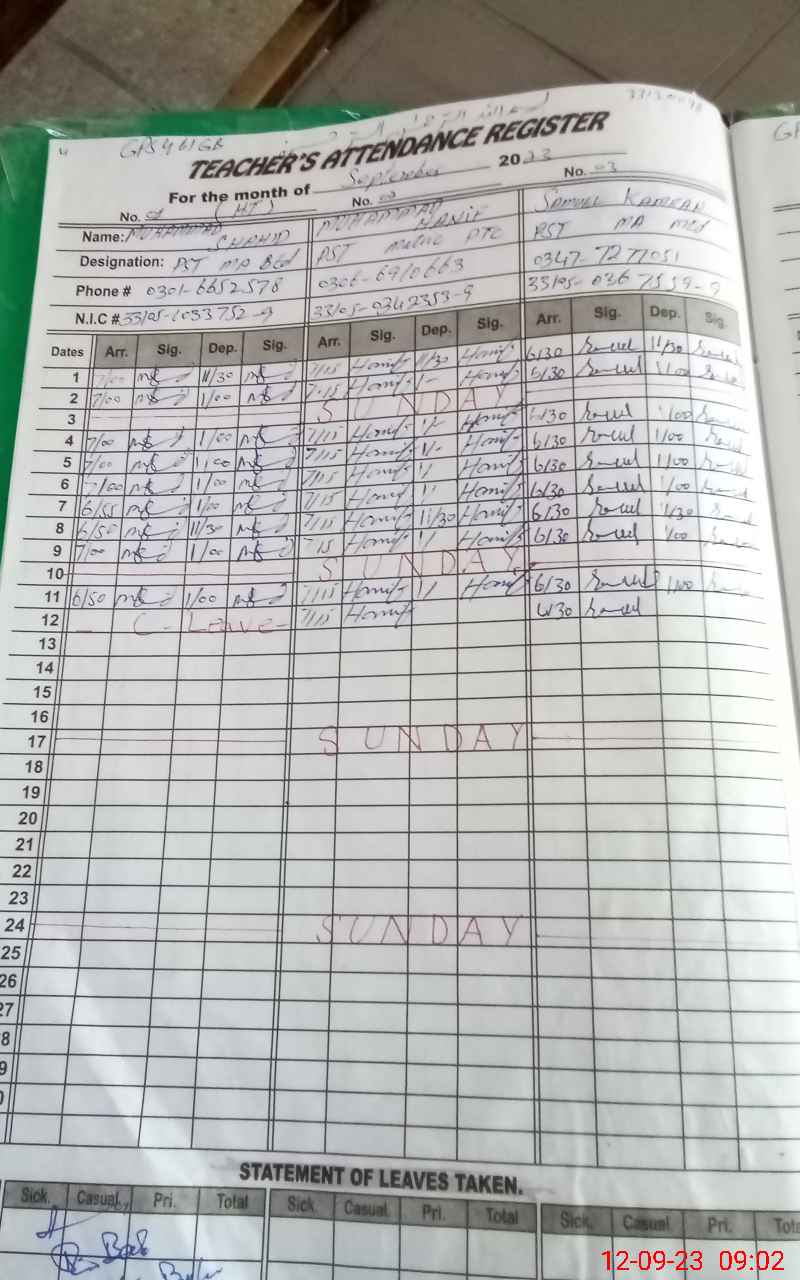 GPS 461 GB
TEACHER'S ATTENDANCE REGISTER
For the month of September 2023
No. 01 (HT) No. 02 No. 03
Name: MUHAMMAD SHAHID MUHAMMAD HANIF SAMUEL KAMRAN
Designation: PST MA BEd PST Matric PTC PST MA MEd
Phone # 0301-6652578 0306-6910663 0347-7277051
N.I.C # 33105-1033752-9 33105-0342353-9 33105-0367559-9
Dates Arr. Sig. Dep. Sig. Arr. Sig. Dep. Sig. Arr. Sig. Dep. Sig.
1 7/00 11/30 7/15 Hanif 11/30 Hanif 6/30 11/30
2 7/00 1/00 7/15 Hanif 1/- Hanif 6/30 1/00
3 SUNDAY
4 7/00 1/00 7/15 Hanif 1/- Hanif 6/30 1/00
5 7/00 1/00 7/15 Hanif 1/- Hanif 6/30 1/00
6 7/00 1/00 7/15 Hanif 1/ Hanif 6/30 1/00
7 6/55 1/00 7/15 Hanif 1/ Hanif 6/30 1/00
8 6/50 11/30 7/15 Hanif 11/30 Hanif 6/30 11/30
9 7/00 1/00 7/15 Hanif 1/ Hanif 6/30 1/00
10 SUNDAY
11 6/50 1/00 7/15 Hanif 1/ Hanif 6/30 1/00
12 - C - Leave - 7/15 Hanif 6/30
13
14
15
16
17 SUNDAY
18
19
20
21
22
23
24 SUNDAY
25
26
27
8
9
0
STATEMENT OF LEAVES TAKEN.
Sick. Casual. Pri. Total Sick. Casual. Pri. Total Sick. Casual. Pri. Tota
12-09-23 09:02